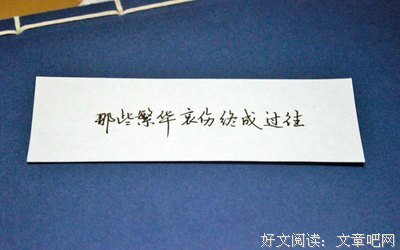 那些繁华哀伤终成过往
好文阅读：文章吧网